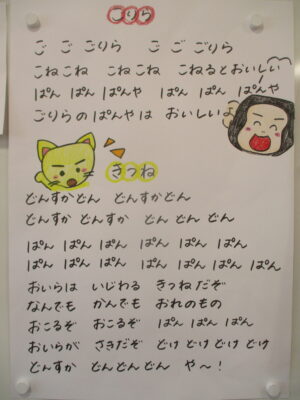 ごりら
ご ご ごりら ご ご ごりら
こねこね こねこね こねるとおいしい
ぱん ぱん ぱんや ぱん ぱん ぱんや
ごりらのぱんやは おいしいよ
きつね
どんすかどん どんすかどん
どんすか どんすか どん どん どん
ぱん ぱん ぱん ぱん ぱん ぱん
ぱん ぱん ぱん ぱん ぱん ぱん ぱん
おいらは いじわる きつねだぞ
なんでも かんでも おれのもの
おこるぞ おこるぞ ぱん ぱん ぱん
おいらが さきだぞ どけ どけ どけ どけ
どんすか どんどんどん や〜!